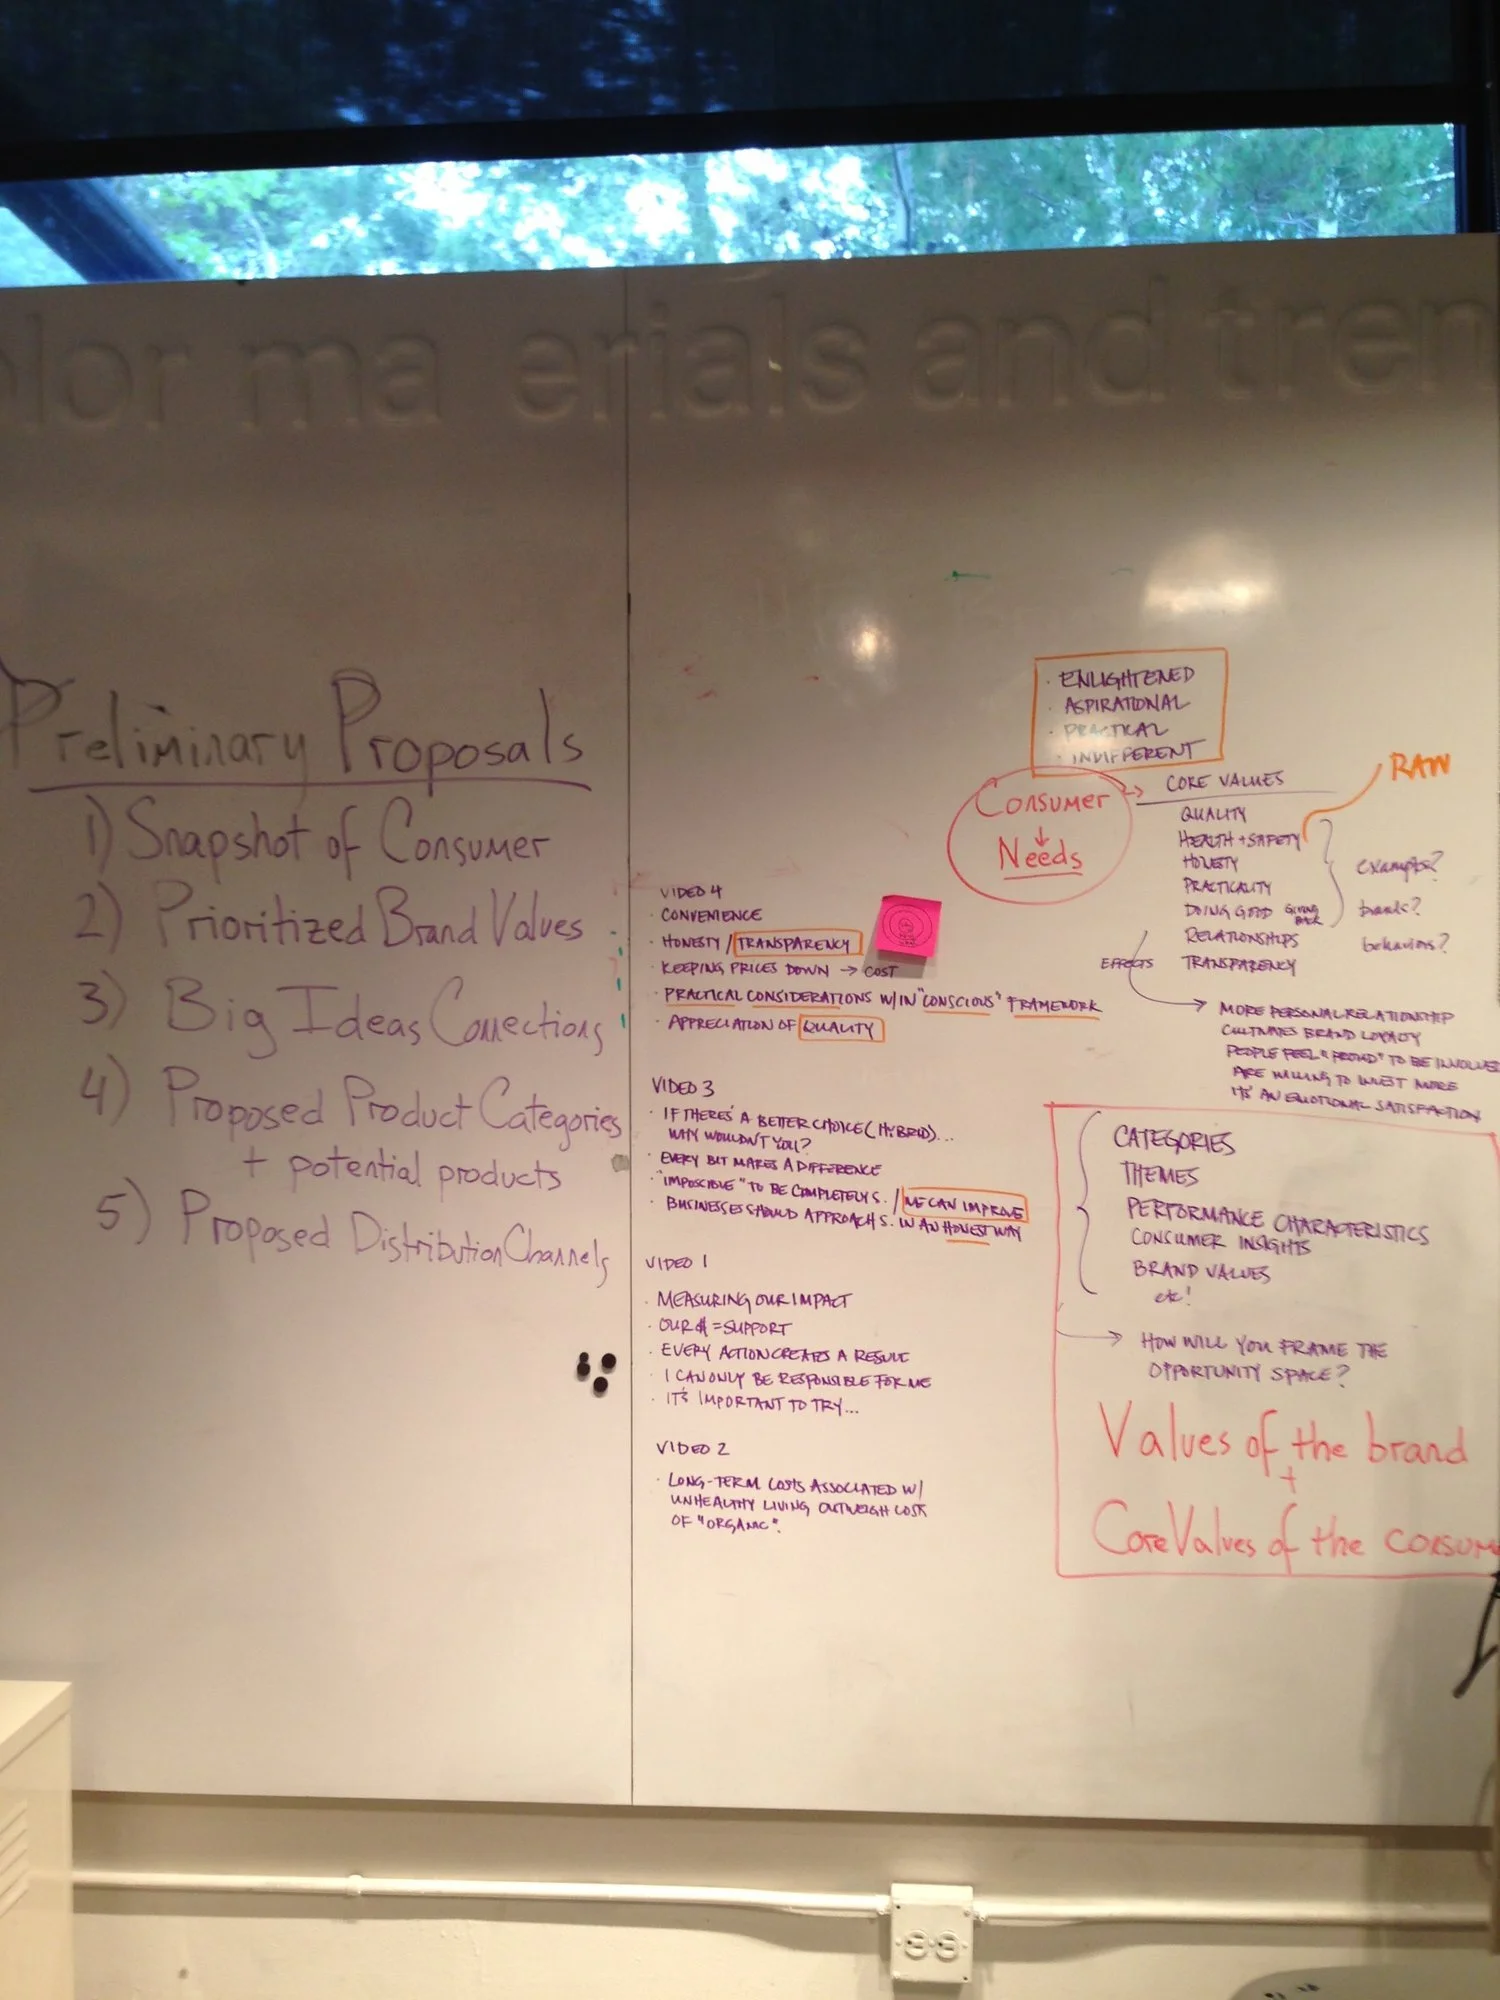 olor ma erials and tren
Preliminary Proposals
1) Snapshot of Consumer
2) Prioritized Brand Values
3) Big Ideas Connections
4) Proposed Product Categories
+ potential products
5) Proposed Distribution Channels
VIDEO 4
· CONVENIENCE
· HONESTY / TRANSPARENCY
· KEEPING PRICES DOWN → COST
· PRACTICAL CONSIDERATIONS W/IN "CONSCIOUS" FRAMEWORK
· APPRECIATION OF QUALITY
VIDEO 3
· IF THERE'S A BETTER CHOICE (HYBRID)...
WHY WOULDN'T YOU?
· EVERY BIT MAKES A DIFFERENCE
· "IMPOSSIBLE" TO BE COMPLETELY S. / WE CAN IMPROVE
· BUSINESSES SHOULD APPROACH S. IN AN HONEST WAY
VIDEO 1
· MEASURING OUR IMPACT
· OUR $ = SUPPORT
· EVERY ACTION CREATES A RESULT
· I CAN ONLY BE RESPONSIBLE FOR ME
· IT'S IMPORTANT TO TRY...
VIDEO 2
· LONG-TERM COSTS ASSOCIATED W/
UNHEALTHY LIVING OUTWEIGH COST
OF "ORGANIC".
· ENLIGHTENED
· ASPIRATIONAL
· PRACTICAL
· INDIFFERENT
Consumer
↓
Needs
→ CORE VALUES
RAW
QUALITY
HEALTH + SAFETY
HONESTY
PRACTICALITY
DOING GOOD GIVING BACK
RELATIONSHIPS
TRANSPARENCY
examples?
brands?
behaviors?
EFFECTS
→ MORE PERSONAL RELATIONSHIP
CULTIVATES BRAND LOYALTY
PEOPLE FEEL "PROUD" TO BE INVOLVED
ARE WILLING TO INVEST MORE
IT'S AN EMOTIONAL SATISFACTION
CATEGORIES
THEMES
PERFORMANCE CHARACTERISTICS
CONSUMER INSIGHTS
BRAND VALUES
etc!
→ HOW WILL YOU FRAME THE
OPPORTUNITY SPACE?
Values of the brand
+
Core Values of the consum